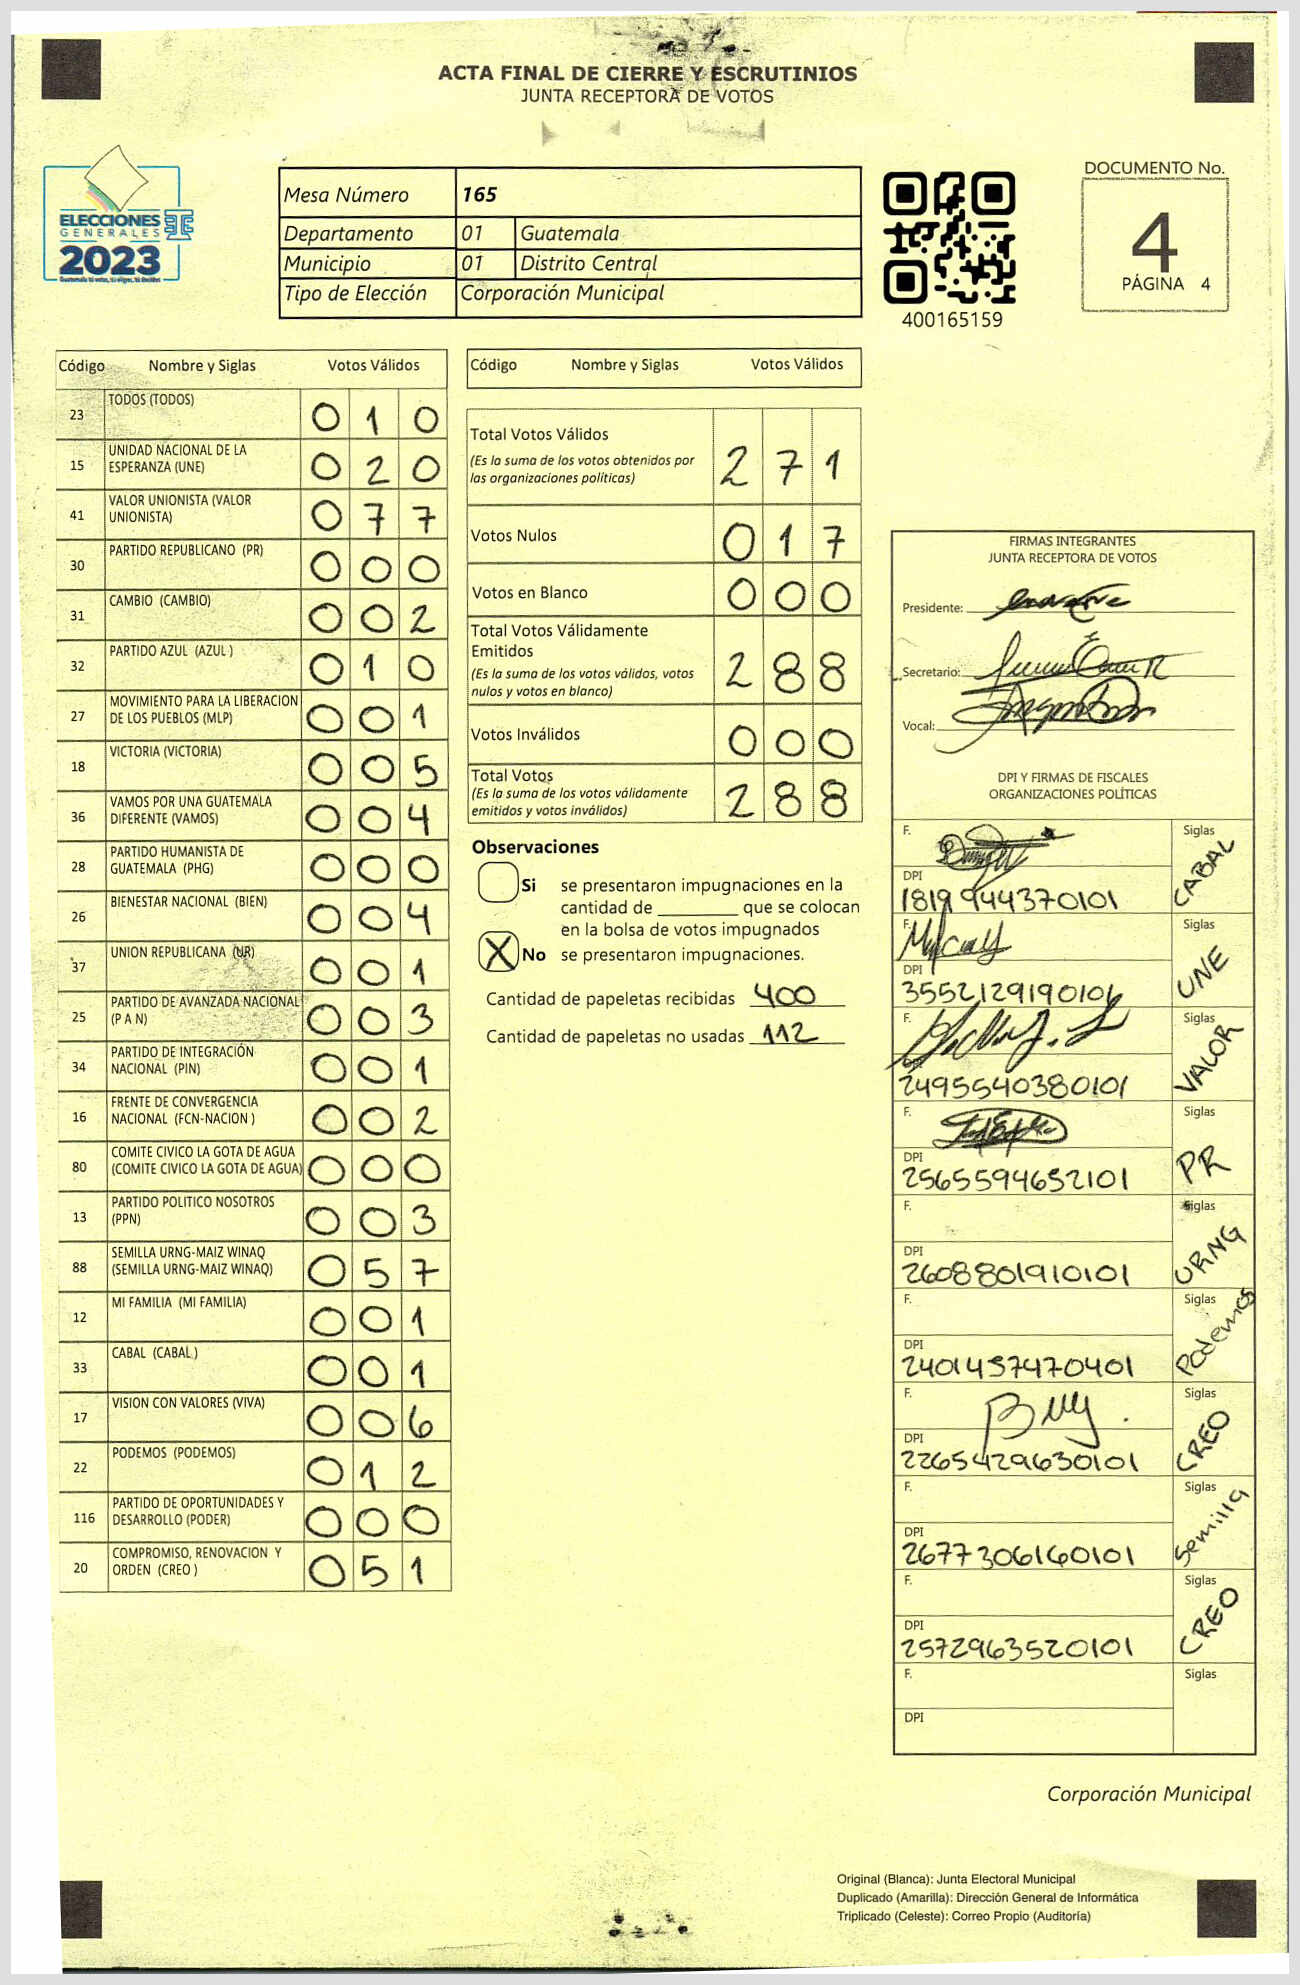 ACTA FINAL DE CIERRE Y ESCRUTINIOS
JUNTA RECEPTORA DE VOTOS
ELECCIONES
GENERALES
2023
Mesa Número 165
Departamento 01 Guatemala
Municipio 01 Distrito Central
Tipo de Elección Corporación Municipal
400165159
DOCUMENTO No.
4
PÁGINA 4
Código Nombre y Siglas Votos Válidos
23 TODOS (TODOS) 0 1 0
15 UNIDAD NACIONAL DE LA ESPERANZA (UNE) 0 2 0
41 VALOR UNIONISTA (VALOR UNIONISTA) 0 7 7
30 PARTIDO REPUBLICANO (PR) 0 0 0
31 CAMBIO (CAMBIO) 0 0 2
32 PARTIDO AZUL (AZUL ) 0 1 0
27 MOVIMIENTO PARA LA LIBERACION DE LOS PUEBLOS (MLP) 0 0 1
18 VICTORIA (VICTORIA) 0 0 5
36 VAMOS POR UNA GUATEMALA DIFERENTE (VAMOS) 0 0 4
28 PARTIDO HUMANISTA DE GUATEMALA (PHG) 0 0 0
26 BIENESTAR NACIONAL (BIEN) 0 0 4
37 UNION REPUBLICANA (UR) 0 0 1
25 PARTIDO DE AVANZADA NACIONAL (P A N) 0 0 3
34 PARTIDO DE INTEGRACIÓN NACIONAL (PIN) 0 0 1
16 FRENTE DE CONVERGENCIA NACIONAL (FCN-NACION ) 0 0 2
80 COMITE CIVICO LA GOTA DE AGUA (COMITE CIVICO LA GOTA DE AGUA) 0 0 0
13 PARTIDO POLITICO NOSOTROS (PPN) 0 0 3
88 SEMILLA URNG-MAIZ WINAQ (SEMILLA URNG-MAIZ WINAQ) 0 5 7
12 MI FAMILIA (MI FAMILIA) 0 0 1
33 CABAL (CABAL ) 0 0 1
17 VISION CON VALORES (VIVA) 0 0 6
22 PODEMOS (PODEMOS) 0 1 2
116 PARTIDO DE OPORTUNIDADES Y DESARROLLO (PODER) 0 0 0
20 COMPROMISO, RENOVACION Y ORDEN (CREO ) 0 5 1
Código Nombre y Siglas Votos Válidos
Total Votos Válidos
(Es la suma de los votos obtenidos por
las organizaciones políticas) 2 7 1
Votos Nulos 0 1 7
Votos en Blanco 0 0 0
Total Votos Válidamente
Emitidos
(Es la suma de los votos válidos, votos
nulos y votos en blanco) 2 8 8
Votos Inválidos 0 0 0
Total Votos
(Es la suma de los votos válidamente
emitidos y votos inválidos) 2 8 8
Observaciones
Si se presentaron impugnaciones en la
cantidad de ________ que se colocan
en la bolsa de votos impugnados
X No se presentaron impugnaciones.
Cantidad de papeletas recibidas 400
Cantidad de papeletas no usadas 112
FIRMAS INTEGRANTES
JUNTA RECEPTORA DE VOTOS
Presidente:
Secretario:
Vocal:
DPI Y FIRMAS DE FISCALES
ORGANIZACIONES POLÍTICAS
F. Siglas
DPI CABAL
1819 944370101
F. Siglas
DPI UNE
3552129190101
F. Siglas
DPI VALOR
2495540380101
F. Siglas
DPI PR
2565594652101
F. Siglas
DPI URNG
2608801910101
F. Siglas
DPI Podemos
2401457470401
F. Siglas
DPI CREO
2265429630101
F. Siglas
DPI Semilla
2677306160101
F. Siglas
DPI CREO
2572963520101
F. Siglas
DPI
Corporación Municipal
Original (Blanca): Junta Electoral Municipal
Duplicado (Amarilla): Dirección General de Informática
Triplicado (Celeste): Correo Propio (Auditoría)